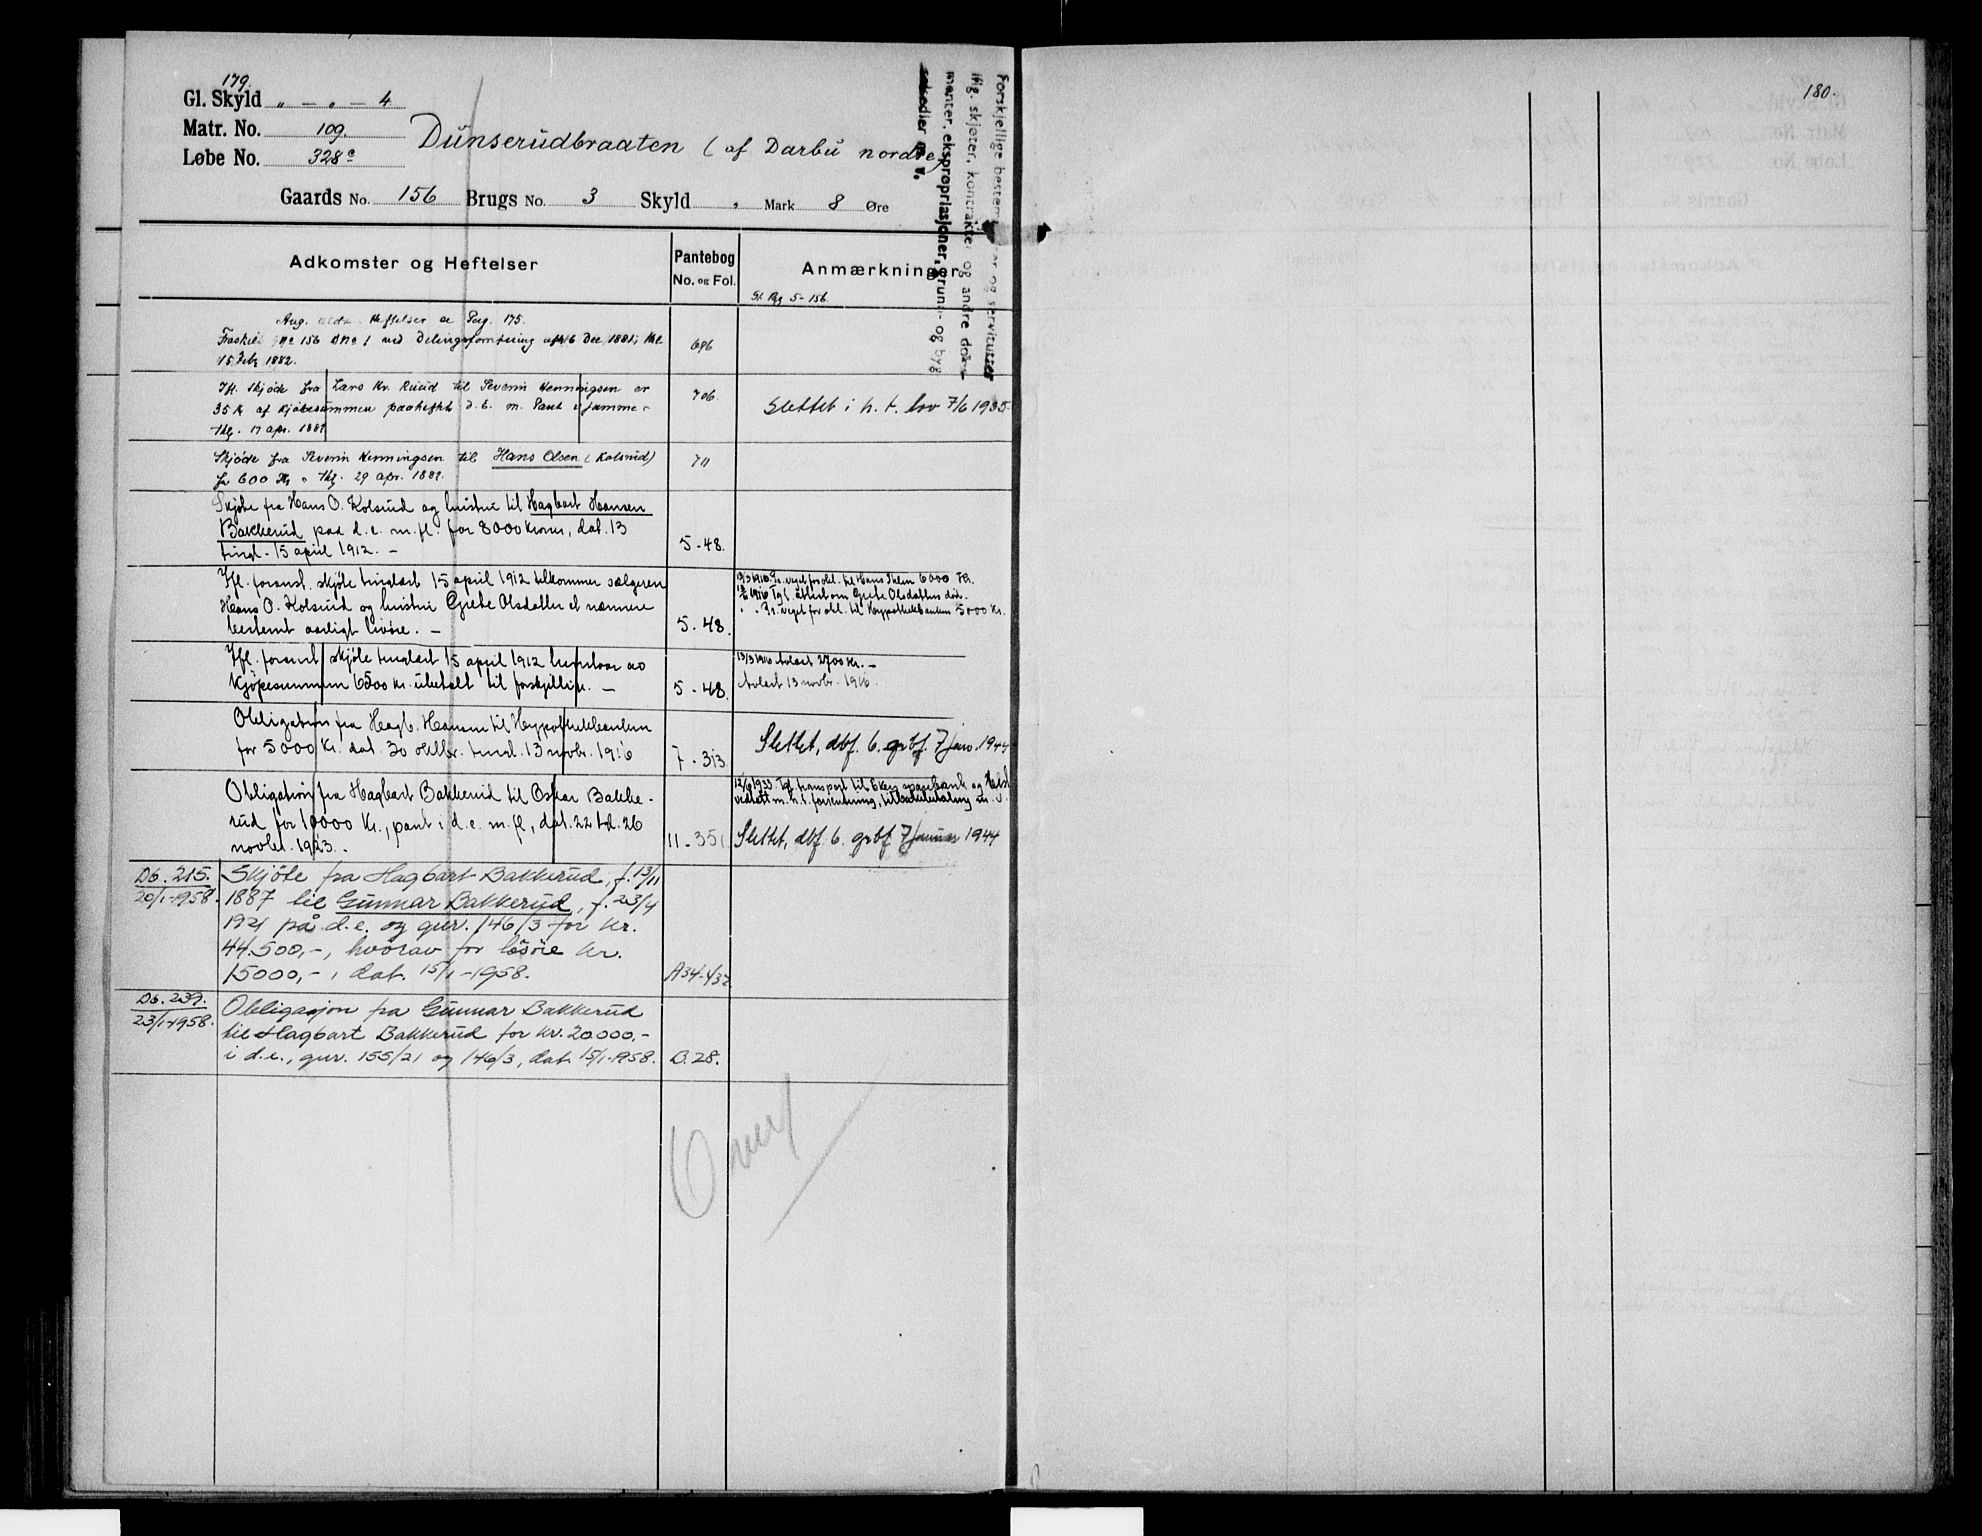 179.
Gl. Skyld " - " - 4
Matr. No. 109.
Løbe No. 328c
Dunserudbraaten (af Darbu nordre)
Gaards No. 156 Brugs No. 3 Skyld " Mark 8 Øre
Forskjellige bestemmelser og servitutter
iflg. skjøter, kontrakter og andre doku-
menter, ekspropriasjoner, grunn- og byg
sedler m. v.
Adkomster og Heftelser
Pantebog
No. og Fol.
Anmærkninger
Gl. Rg 5-156.
Ang. ældre Heftelser se Pag. 175.
Fraskilt Gno 156 Bno 1 ved Delingsforretning 16 Dec 1881, thl.
15 Febr 1882.
696
Ifl. Skjøde fra Lars Kr. Ruud til Severin Henningsen er
35 Kr af Kjøbesummen paaheftet d. E. m. Pant i samme.
Thl. 17 Apr. 1882
706
Slettet i h. t. lov 7/6 1935.
Skjøde fra Severin Henningsen til Hans Olsen (Kolsrud)
for 600 Kr. Thl. 29 Apr. 1882.
711
Skjøte fra Hans O. Kolsrud og hustru til Hagbart Hansen
Bakkerud paa d.e. m.fl. for 8000 kroner, dat. 13
tingl. 15 april 1912. -
5-48.
Ifl. foranst. skjøte tinglæst 15 april 1912 tilkommer sælgeren
Hans O. Kolsrud og hustru Grete Olsdatter et nærmere
bestemt aarligt livøre. -
5-48.
Kr. veget for obl. til Hans 6000 Kr.
1916 Tgl. attest om Grete Olsdatters død.
" " Pr. veget for obl. til Hypothekbanken 5000 Kr.
Ifl. foranst. skjøte tinglæst 15 april 1912 henstaar av
Kjøpesummen 6500 kr. ubetalt til forskjellige. -
5-48.
13/3 1916 Avlæst 2700 Kr. -
Avlæst 13 novbr. 1916.
Obligation fra Hagb. Hansen til Hypothekbanken
for 5000 Kr. dat. 30 oktbr. tingl. 13 novbr. 1916
7-313
Slettet, dbf. 6. grbf. 7 jan. 1944
Obligation fra Hagbart Bakkerud til Oskar Bakke-
rud for 10000 Kr., pant i d.e. m.fl., dat. 22 tgl. 26
novbr. 1923.
11-351
12/6 1933. Tgl. transport til Eker sparebank og
vedtatt m. h. t. forrentning, tilbakebetaling m. v.
Slettet, dbf. 6. grbf. 7 januar 1944
Db. 215.
20/1-1958.
Skjøte fra Hagbart Bakkerud, f. 13/11
1887 til Gunnar Bakkerud, f. 23/4
1921 på d.e. og gnr. 146/3 for kr.
44.500,-, hvorav for løsøre kr.
15000,-, dat. 15/1-1958.
A34-432
Db. 239.
23/1-1958.
Obligasjon fra Gunnar Bakkerud
til Hagbart Bakkerud for kr. 20.000,-
i d.e., gnr. 155/21 og 146/3, dat. 15/1-1958.
B.28.
180.